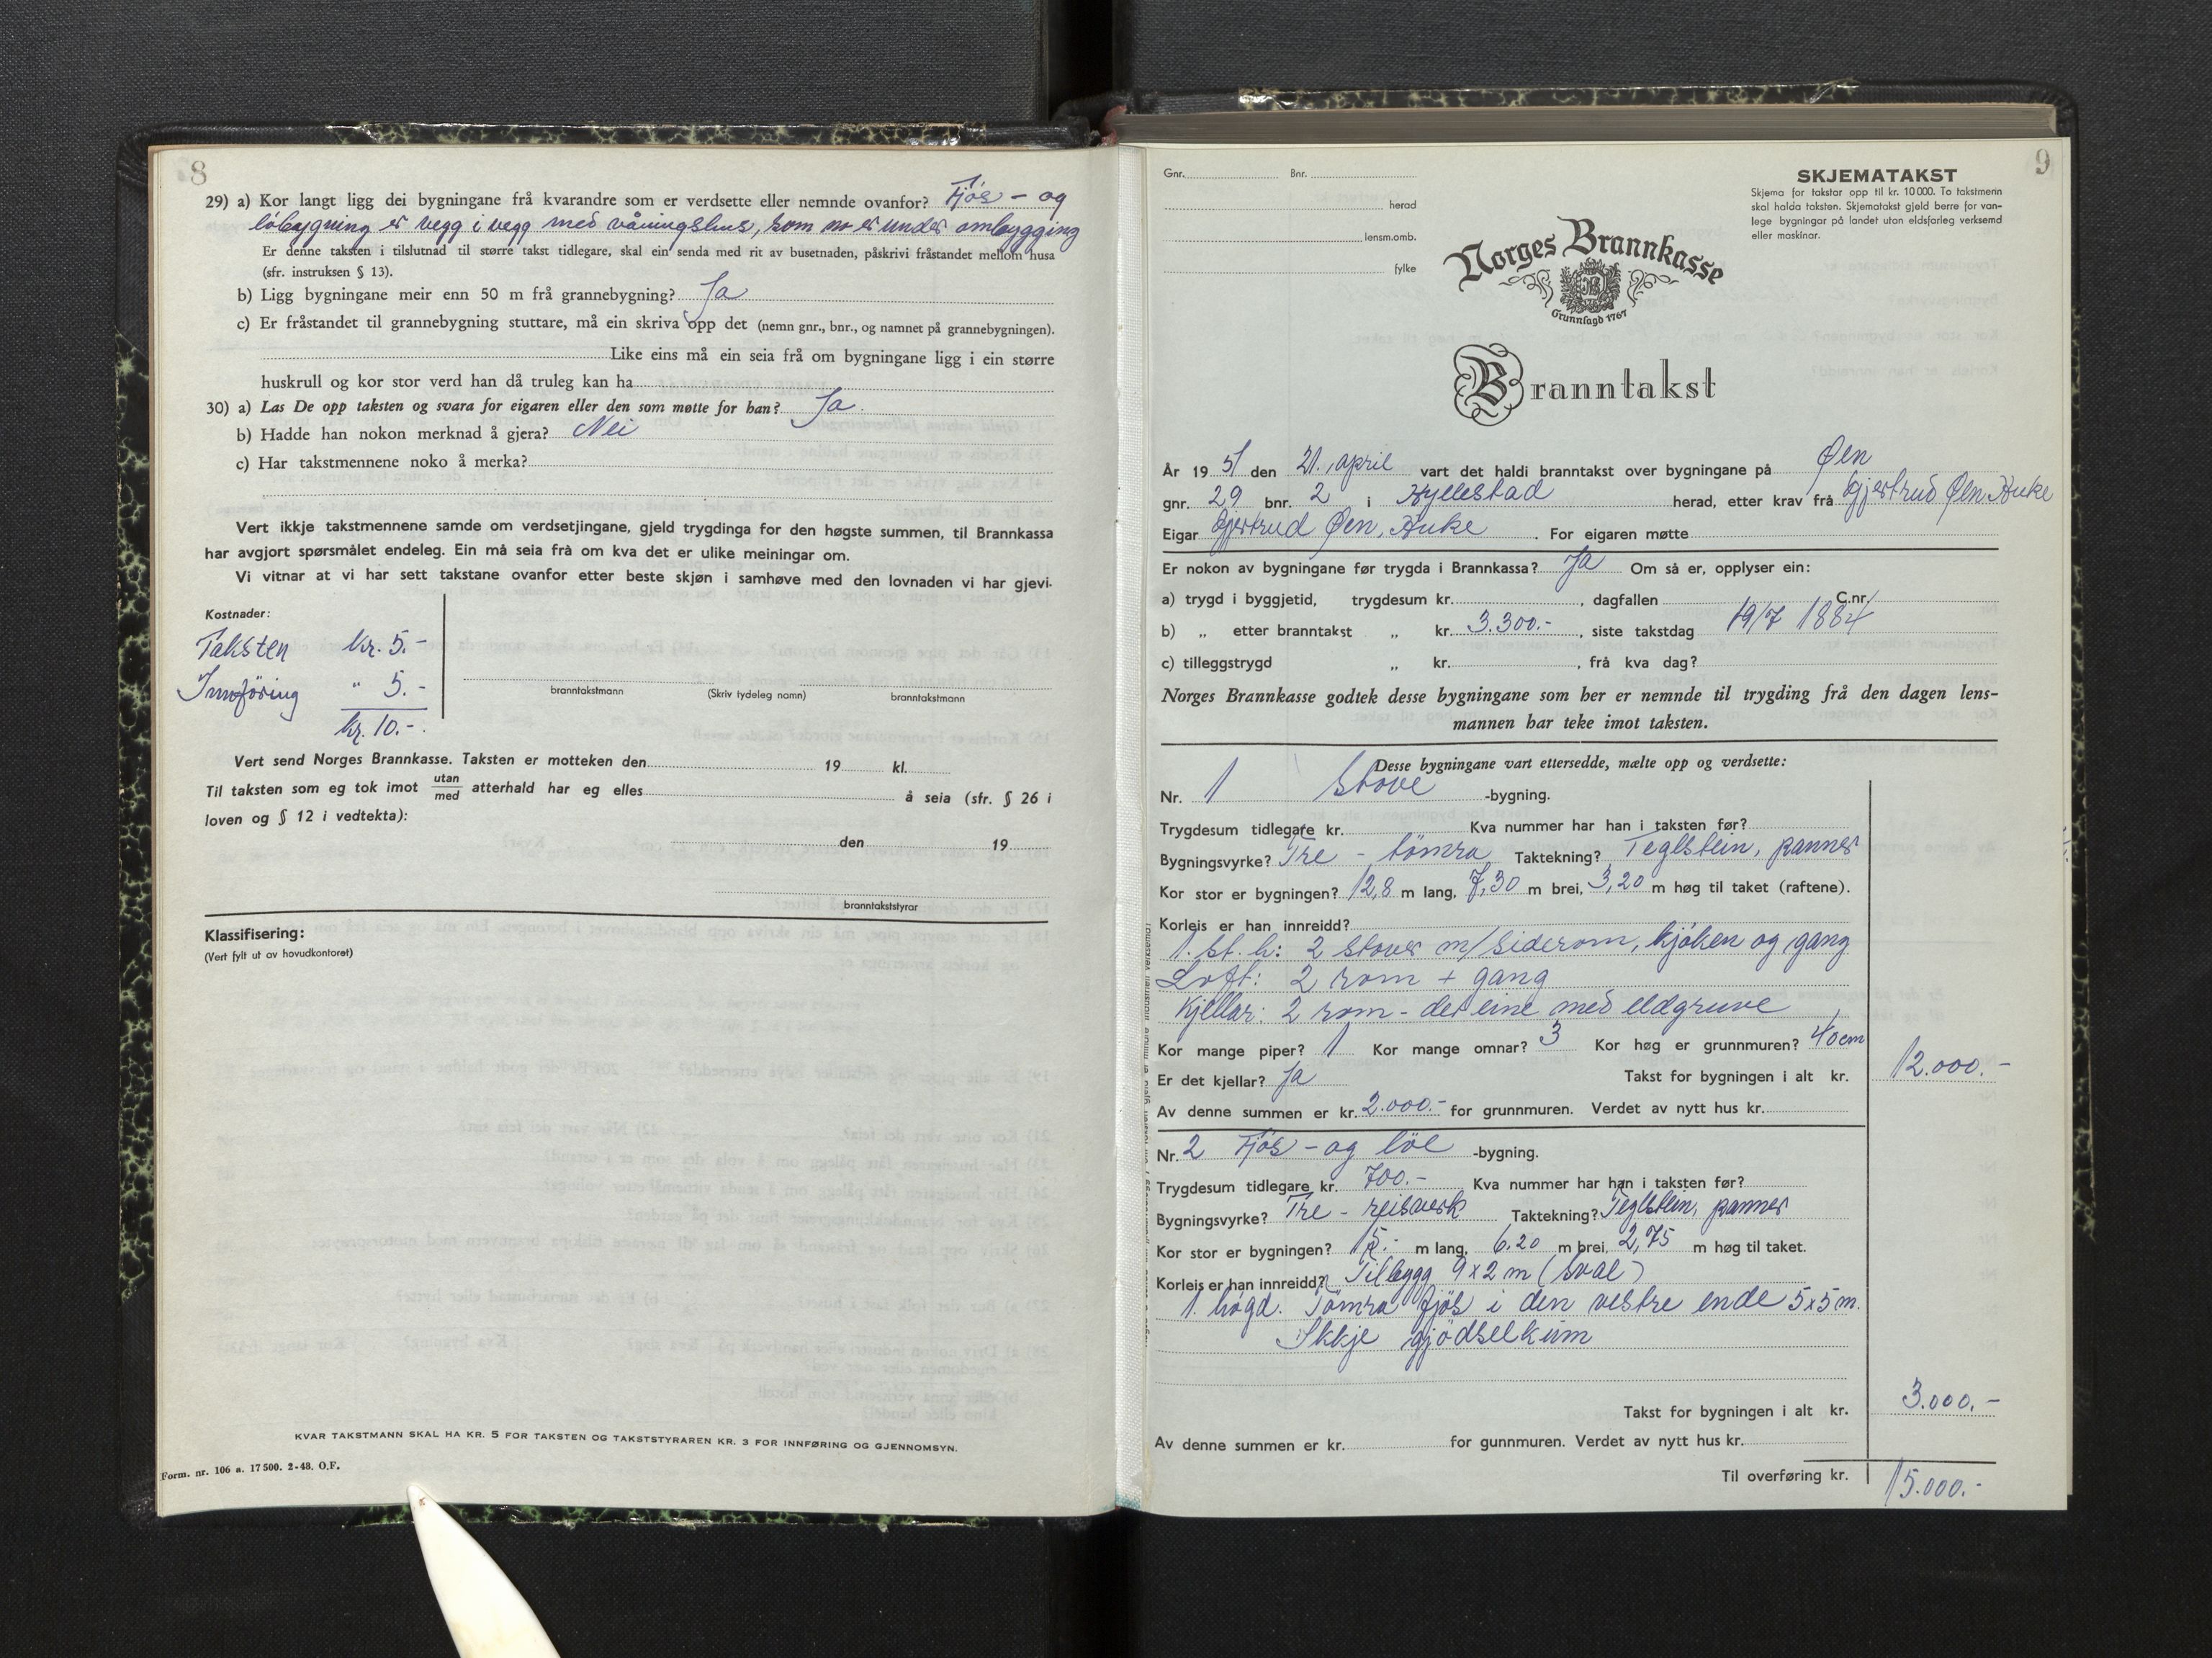 8
29) a) Kor langt ligg dei bygningane frå kvarandre som er verdsette eller nemnde ovanfor? Fjös - og
löbygning er vegg i vegg med våningshus, som no er under ombygging
Er denne taksten i tilslutnad til større takst tidlegare, skal ein senda med rit av busetnaden, påskrivi fråstandet mellom husa
(sfr. instruksen § 13).
b) Ligg bygningane meir enn 50 m frå grannebygning? Ja
c) Er fråstandet til grannebygning stuttare, må ein skriva opp det (nemn gnr., bnr., og namnet på grannebygningen).
Like eins må ein seia frå om bygningane ligg i ein større
huskrull og kor stor verd han då truleg kan ha
30) a) Las De opp taksten og svara for eigaren eller den som møtte for han? Ja.
b) Hadde han nokon merknad å gjera? Nei
c) Har takstmennene noko å merka?
Vert ikkje takstmennene samde om verdsetjingane, gjeld trygdinga for den høgste summen, til Brannkassa
har avgjort spørsmålet endeleg. Ein må seia frå om kva det er ulike meiningar om.
Vi vitnar at vi har sett takstane ovanfor etter beste skjøn i samhøve med den lovnaden vi har gjevi.
Kostnader:
Taksten kr. 5.-
Innföring " 5.-
kr. 10.-
branntakstmann (Skriv tydeleg namn) branntakstmann
Vert send Norges Brannkasse. Taksten er motteken den 19 kl.
Til taksten som eg tok imot utan/med atterhald har eg elles å seia (sfr. § 26 i
loven og § 12 i vedtekta):
den 19
branntakststyrar
Klassifisering:
(Vert fylt ut av hovudkontoret)
KVAR TAKSTMANN SKAL HA KR. 5 FOR TAKSTEN OG TAKSTSTYRAREN KR. 3 FOR INNFØRING OG GJENNOMSYN.
Form. nr. 106 a. 17 500. 2-48. O.F.
9
Gnr. Bnr.
herad
lensm.omb.
fylke
SKJEMATAKST
Skjema for takstar opp til kr. 10 000. To takstmenn
skal halda taksten. Skjematakst gjeld berre for van-
lege bygningar på landet utan eldsfarleg verksemd
eller maskinar.
Norges Brannkasse
Grunnlagd 1767
Branntakst
År 1951 den 21. april vart det haldi branntakst over bygningane på Øen
gnr. 29 bnr. 2 i Hyllestad herad, etter krav frå Gjertrud Øen Huke
Eigar Gjertrud Øen, Huke. For eigaren møtte
Er nokon av bygningane før trygda i Brannkassa? Ja Om så er, opplyser ein:
a) trygd i byggjetid, trygdesum kr. , dagfallen C.nr.
b) „ etter branntakst „ kr. 3.300.- , siste takstdag 19/7 1884
c) tilleggstrygd „ kr. , frå kva dag?
Norges Brannkasse godtek desse bygningane som her er nemnde til trygding frå den dagen lens-
mannen har teke imot taksten.
Desse bygningane vart ettersedde, mælte opp og verdsette:
Nr. 1 Stove -bygning.
Trygdesum tidlegare kr. Kva nummer har han i taksten før?
Bygningsvyrke? Tre - tömra Taktekning? Teglstein, panner
Kor stor er bygningen? 12,8 m lang, 7,30 m brei, 3,20 m høg til taket (raftene).
Korleis er han innreidd?
1. st. h: 2 stover m/siderom, kjöken og gang
Loft: 2 rom + gang
Kjellar: 2 rom - det eine med eldgruve
Kor mange piper? 1 Kor mange omnar? 3 Kor høg er grunnmuren? 40 cm
Er det kjellar? Ja Takst for bygningen i alt kr. 12.000.-
Av denne summen er kr. 2.000.- for grunnmuren. Verdet av nytt hus kr.
Nr. 2 Fjös - og löe -bygning.
Trygdesum tidlegare kr. 700.- Kva nummer har han i taksten før?
Bygningsvyrke? Tre - reisverk Taktekning? Teglstein, panner
Kor stor er bygningen? 15.- m lang, 6.20 m brei, 2,75 m høg til taket.
Korleis er han innreidd? Tilbygg 9 x 2 m (sval)
1. högd. Tömra fjös i den vestre ende 5 x 5 m.
Ikkje gjödselkum
Takst for bygningen i alt kr. 3.000.-
Av denne summen er kr. for gunnmuren. Verdet av nytt hus kr.
Til overføring kr. 15.000.-